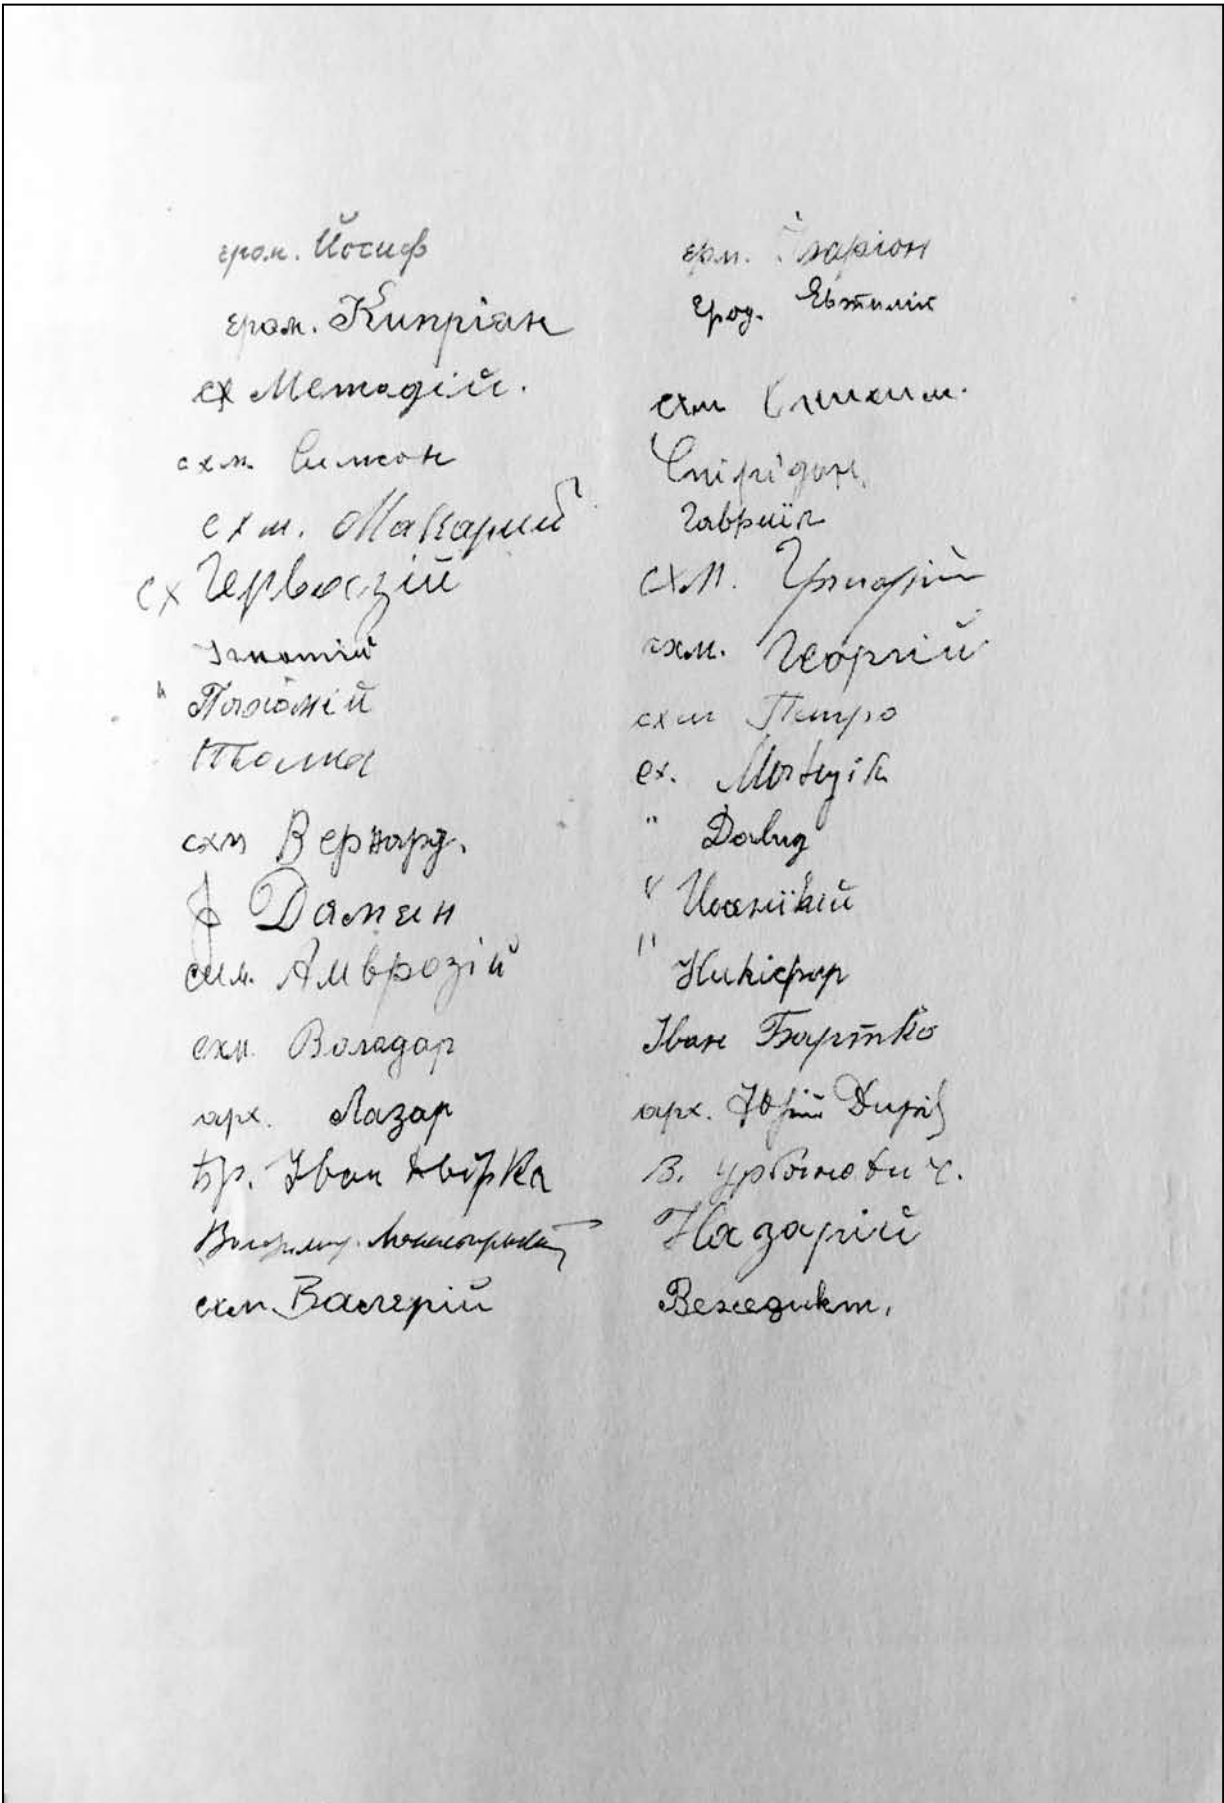 єром. Йосиф
єром. Кипріян
сх Методій.
схм. Симеон
схм. Макарий
сх Гервазій
Ігнатій
" Пахомій
Тома
схм Вернард.
Дамян
схм. Амврозій
схм. Володар
арх. Лазар
бр. Іван
схм. Валерій
єрм. Іларіон
Єрод. Євтимій
схм
Спірідон
Гавриїл
схм. Григорій
схм. Георгій
схм Петро
сх. Мойсей
" Давид
" Йоаникій
" Никифор
Іван Бартко
арх. Юрій
В. Урбанович.
Назарій
Венедикт.